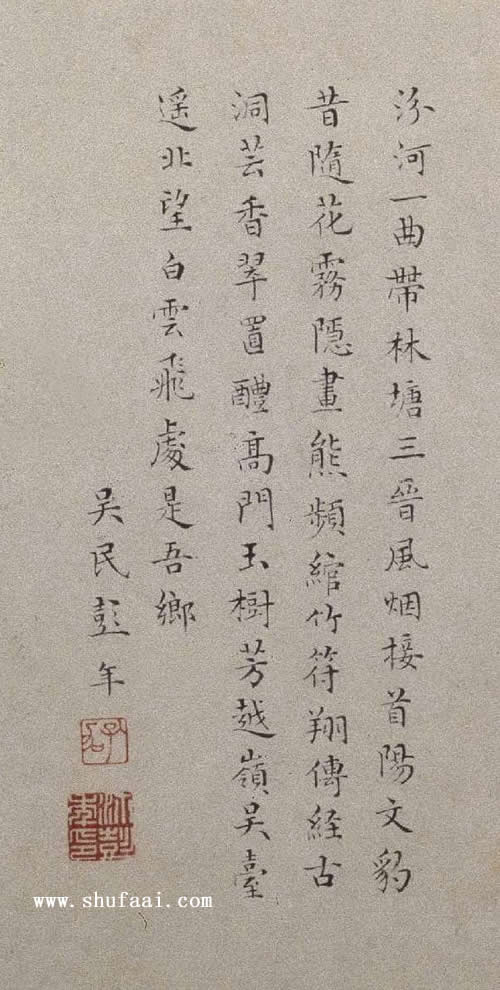 汾河一曲帶林塘三晉風烟接首陽文豹
昔隨花霧隱畫熊頻綰竹符翔傳経古
洞芸香翠置醴高門玉樹芳越嶺吴臺
遥北望白雲飛處是吾鄉
吴民彭年
www.shufaai.com